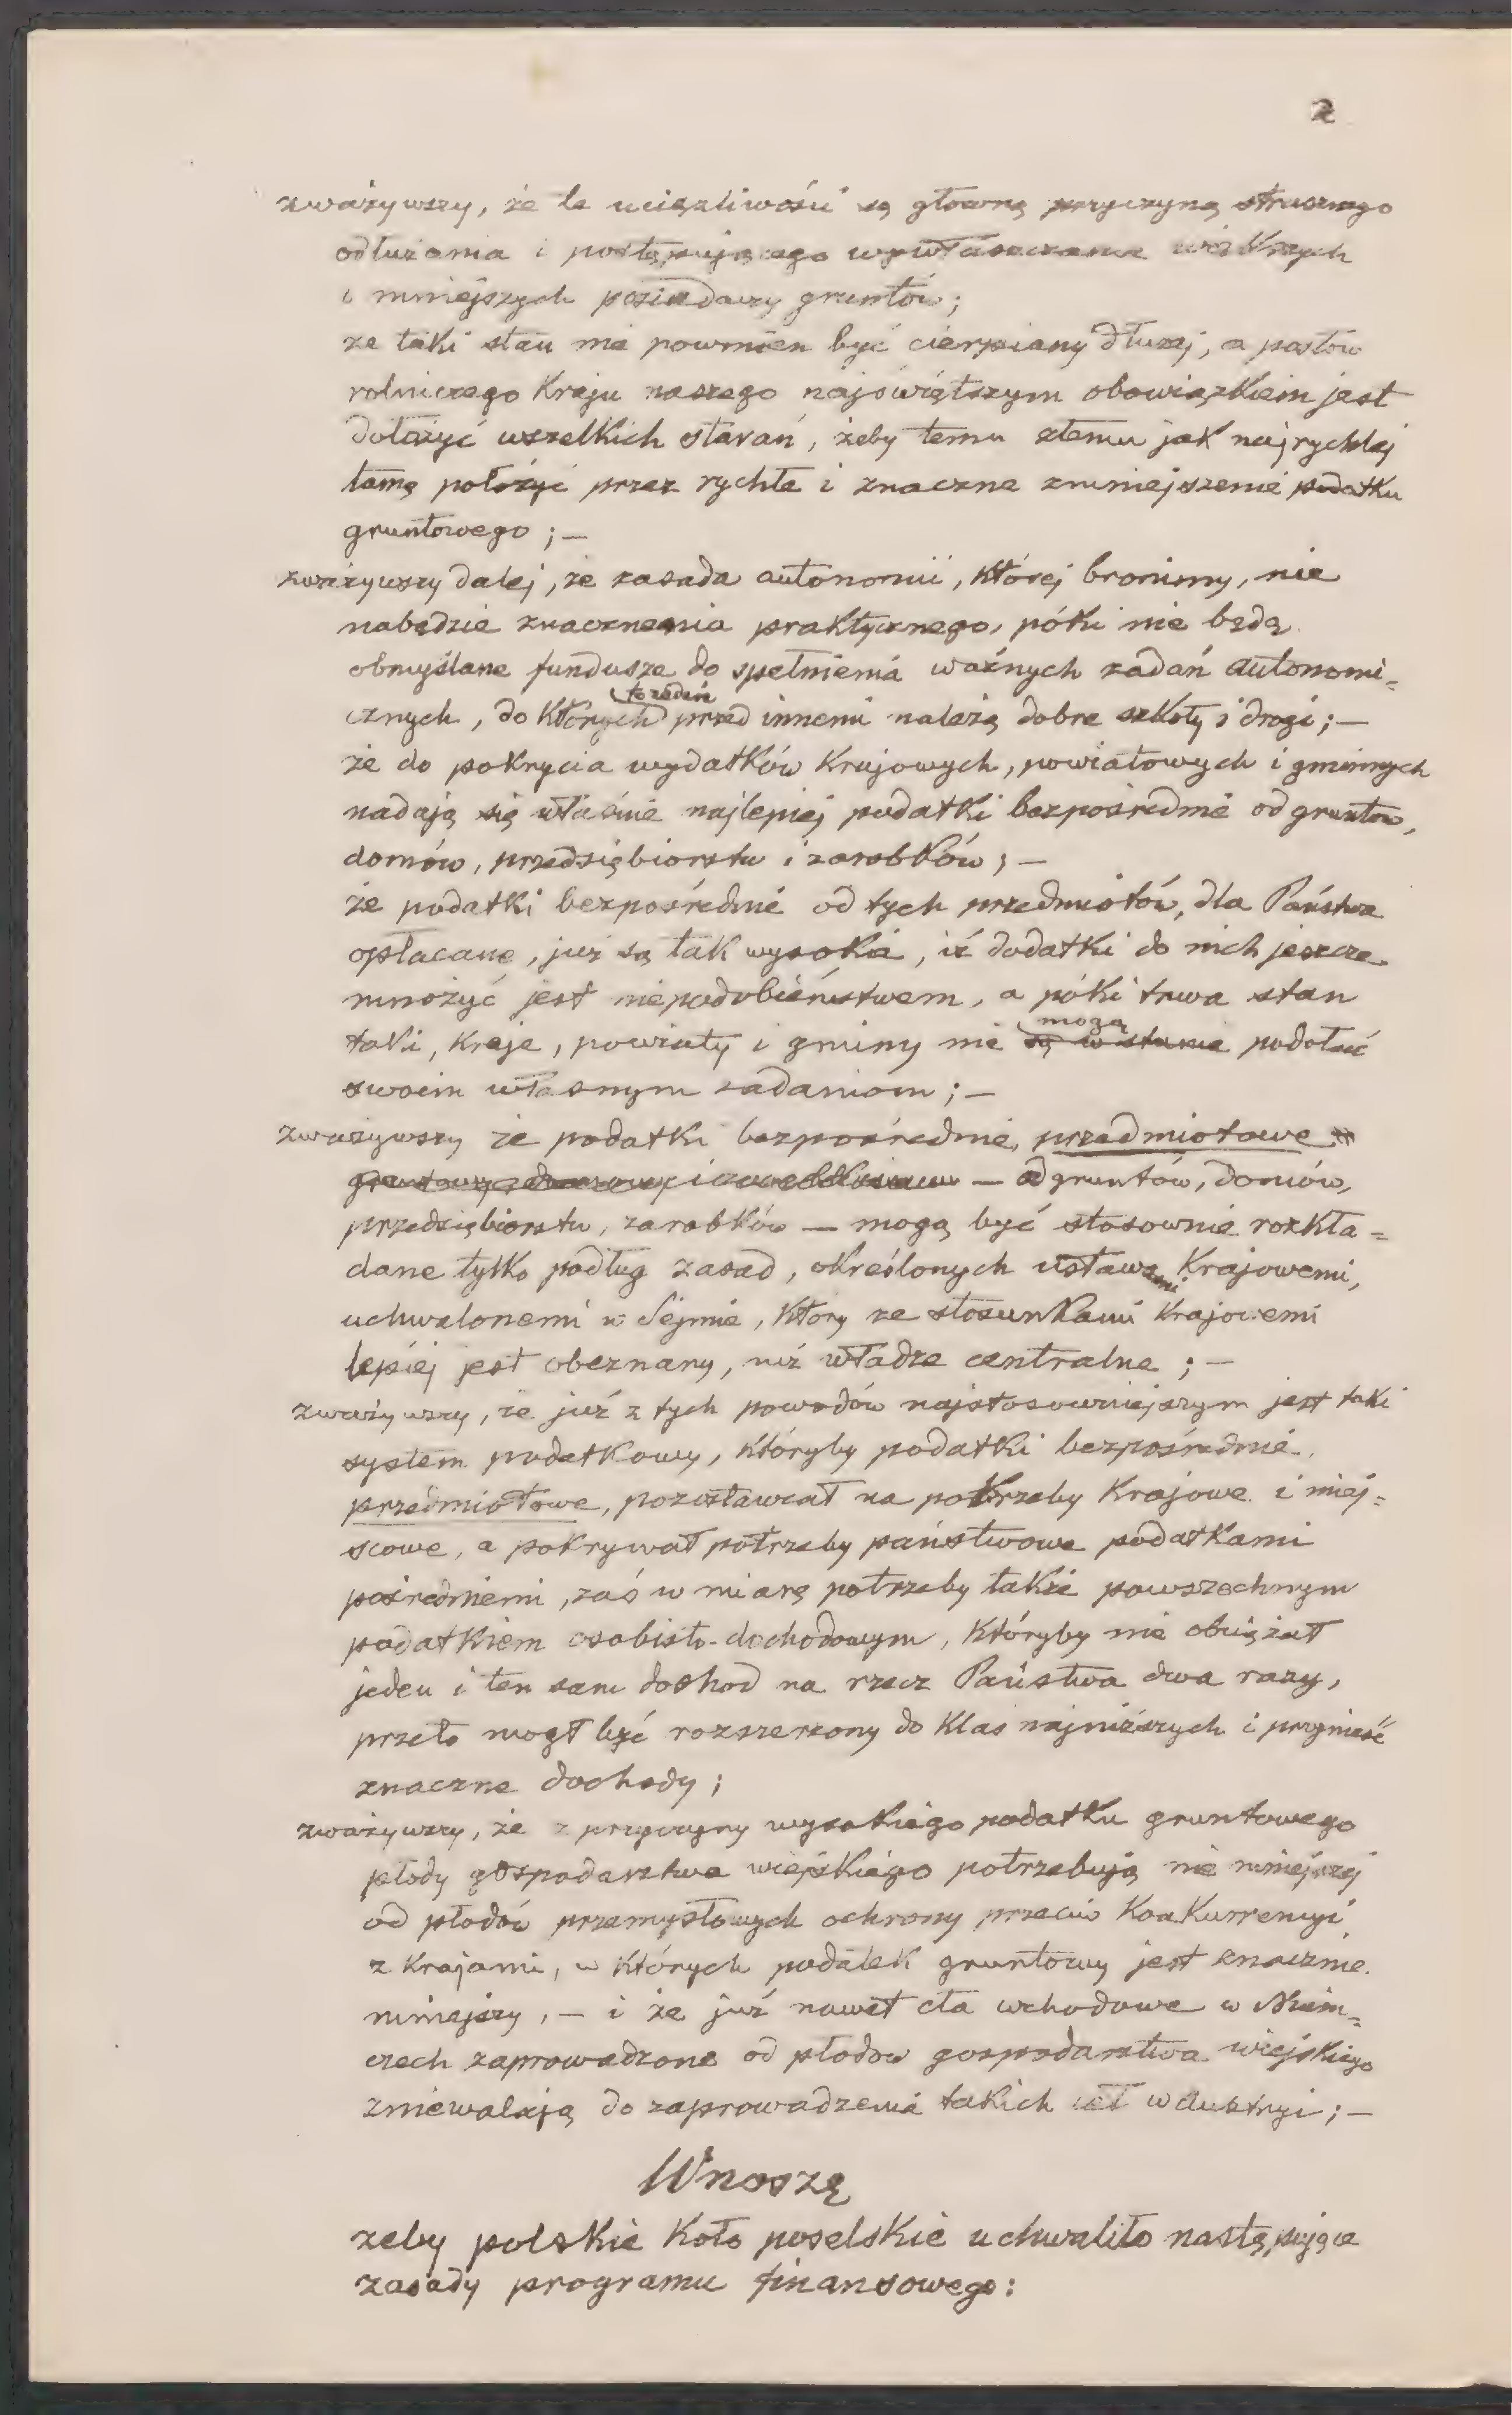 2
zważywszy, że te uciążliwości są główną przyczyną strasznego
odłużania i postępującego wywłaszczania większych
i mniejszych posiadaczy gruntów;
że taki stan nie powinien być cierpiany dłużej, a posłów
rolniczego Kraju naszego najświętszym obowiązkiem jest
dołożyć wszelkich starań, żeby temu złemu jak najrychlej
tamę położyć przez rychłe i znaczne zmniejszenie podatku
gruntowego; —
zważywszy dalej, że zasada autonomii, której bronimy, nie
nabędzie znaczenia praktycznego, póki nie będą
obmyślane fundusze do spełnienia ważnych zadań autonomi=
to zadań
cznych, do których przed innemi należą dobre szkoły i drogi; —
że do pokrycia wydatków Krajowych, powiatowych i gminnych
nadają się właśnie najlepiej podatki bezpośrednie od gruntów,
domów, przedsiębiorstw i zarobków; —
że podatki bezpośrednie od tych przedmiotów, dla Państwa
opłacane, już są tak wysokie, iż dodatki do nich jeszcze
mnożyć jest niepodobieństwem, a póki trwa stan
mogą
taki, Kraje, powiaty i gminy nie są w stanie podołać
swoim własnym zadaniom; —
zważywszy że podatki bezpośrednie, przedmiotowe
— od gruntów, domów,
przedsiębiorstw, zarobków — mogą być stosownie rozkła=
dane tylko podług zasad, określonych ustawami Krajowemi,
uchwalonemi w Sejmie, który ze stosunkami Krajowemi
lepiej jest obeznany, niż władze centralne; —
zważywszy, że już z tych powodów najstosowniejszym jest taki
system podatkowy, któryby podatki bezpośrednie,
przedmiotowe, pozostawiał na potrzeby Krajowe i miej=
scowe, a pokrywał potrzeby państwowe podatkami
pośredniemi, zaś w miarę potrzeby także powszechnym
podatkiem osobisto-dochodowym, któryby nie obciążał
jeden i ten sam dochod na rzecz Państwa dwa razy,
przeto mogł być rozszerzony do Klas najniższych i przynieść
znaczne dochody;
zważywszy, że z przyczyny wysokiego podatku gruntowego
płody gospodarstwa wiejskiego potrzebują nie mniejszej
od płodów przemysłowych ochrony przeciw Konkurrencyi
z Krajami, w których podatek gruntowy jest znacznie
mniejszy, — i że już nawet cła wchodowe w Niem=
czech zaprowadzone od płodów gospodarstwa wiejskiego
zniewalają do zaprowadzenia takich ceł w Austryi; —
Wnoszę
żeby polskie Koło poselskie uchwaliło następujące
zasady programu finansowego: